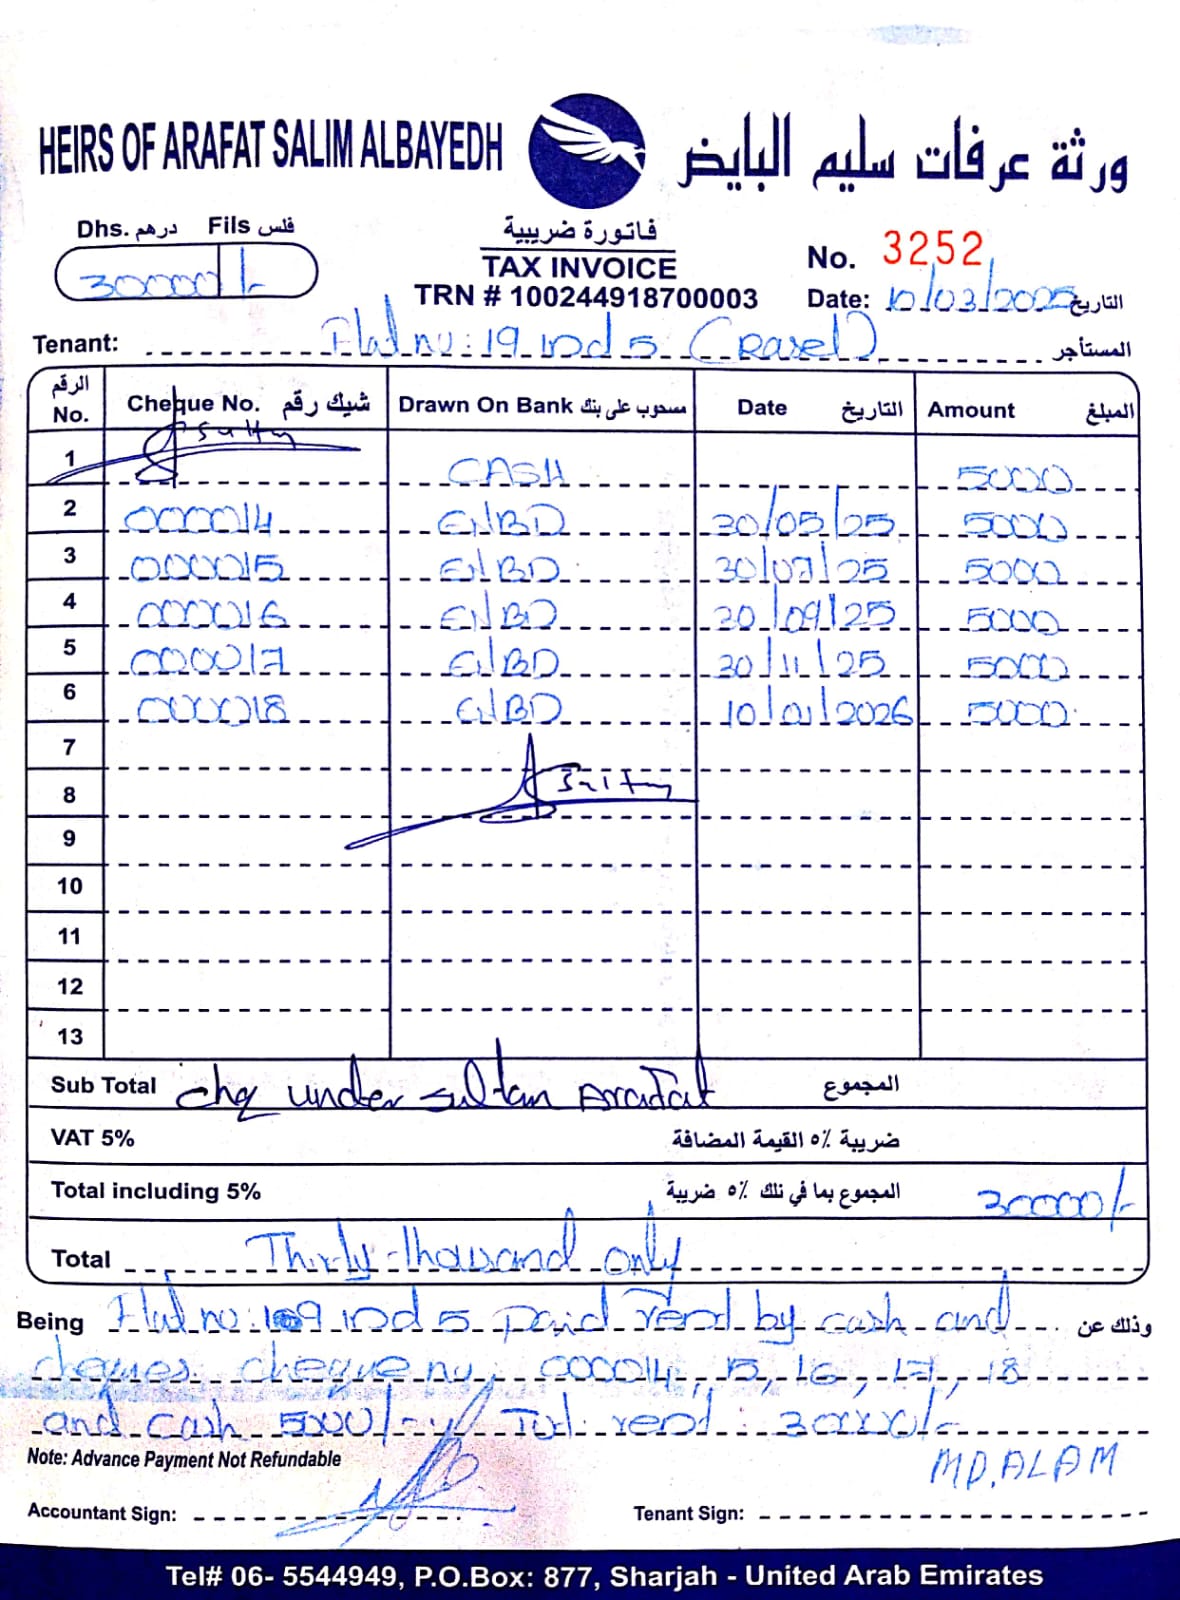 HEIRS OF ARAFAT SALIM ALBAYEDH ورثة عرفات سليم البايض
Dhs. درهم Fils فلس
30000/-
فاتورة ضريبية
TAX INVOICE
TRN # 100244918700003
No. 3252
Date: 10/03/2025 التاريخ
Tenant: Flat no: 19 ind 5 (Rasel) المستأجر
الرقم No. Cheque No. شيك رقم Drawn On Bank مسحوب على بنك Date التاريخ Amount المبلغ
1 CASH 5000
2 000014 ENBD 30/05/25 5000
3 000015 ENBD 30/07/25 5000
4 000016 ENBD 30/09/25 5000
5 000017 ENBD 30/11/25 5000
6 000018 ENBD 10/01/2026 5000
7
8
9
10
11
12
13
Sub Total chq under sultan Arafat المجموع
VAT 5% ضريبة ٥٪ القيمة المضافة
Total including 5% المجموع بما في نلك ٥٪ ضريبة 30000/-
Total Thirty thousand only
Being Flat no: 19 ind 5 paid rend by cash and وذلك عن
cheques cheque no, 000014, 15, 16, 17, 18
and cash 5000/- Tot rend: 30000/-
Note: Advance Payment Not Refundable
MD.ALAM
Accountant Sign: Tenant Sign:
Tel# 06- 5544949, P.O.Box: 877, Sharjah - United Arab Emirates